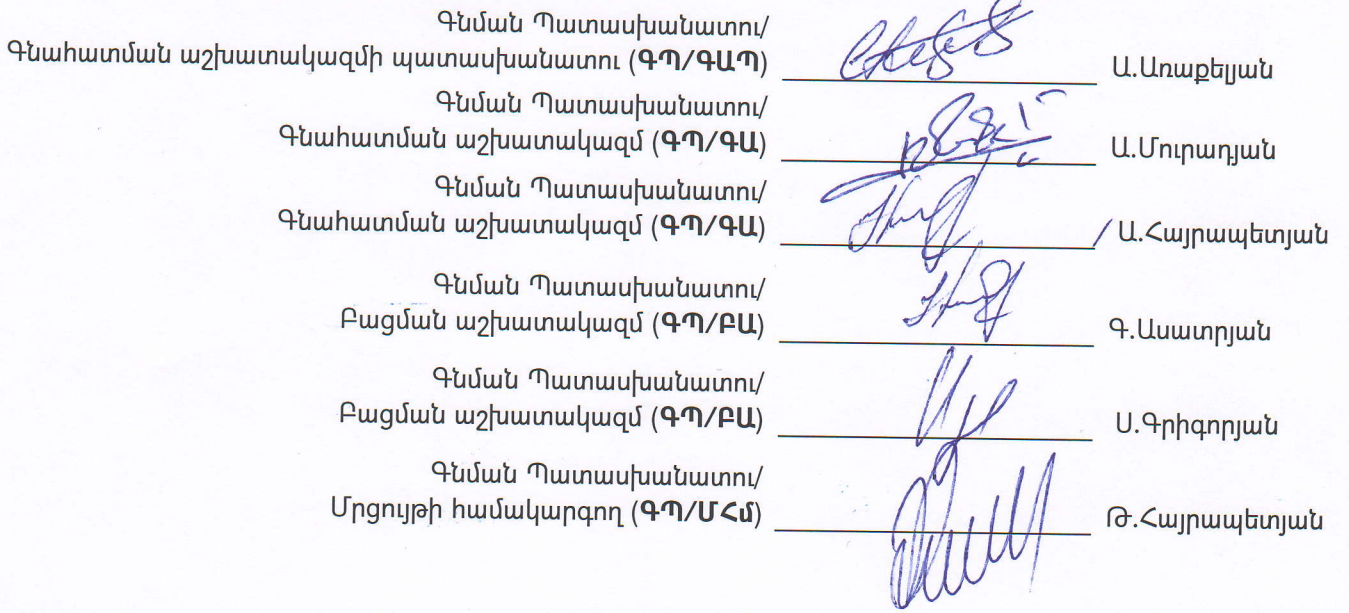 Գնման Պատասխանատու/
Գնահատման աշխատակազմի պատասխանատու (ԳՊ/ԳԱՊ) Ա.Առաքելյան
Գնման Պատասխանատու/
Գնահատման աշխատակազմ (ԳՊ/ԳԱ) Ա.Մուրադյան
Գնման Պատասխանատու/
Գնահատման աշխատակազմ (ԳՊ/ԳԱ) / Ա.Հայրապետյան
Գնման Պատասխանատու/
Բացման աշխատակազմ (ԳՊ/ԲԱ) Գ.Ասատրյան
Գնման Պատասխանատու/
Բացման աշխատակազմ (ԳՊ/ԲԱ) Ս.Գրիգորյան
Գնման Պատասխանատու/
Մրցույթի համակարգող (ԳՊ/ՄՀմ) Թ.Հայրապետյան